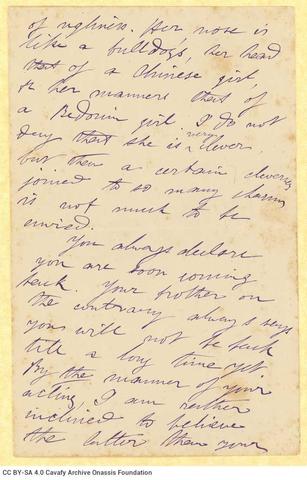 of ugliness. Her nose is
like a bulldogs, her head
that of a Chinese girl,
& her manners that of
a Bedouin girl. I do not
deny that she is very clever,
but then a certain cleverness
joined to so many charms
is not much to be
envied.
You always declare
you are soon coming
back. Your brother on
the contrary always says
you will not be back
till a long time yet.
By the manner of your
acting, I am rather
inclined to believe
the latter than your
CC BY-SA 4.0 Cavafy Archive Onassis Foundation